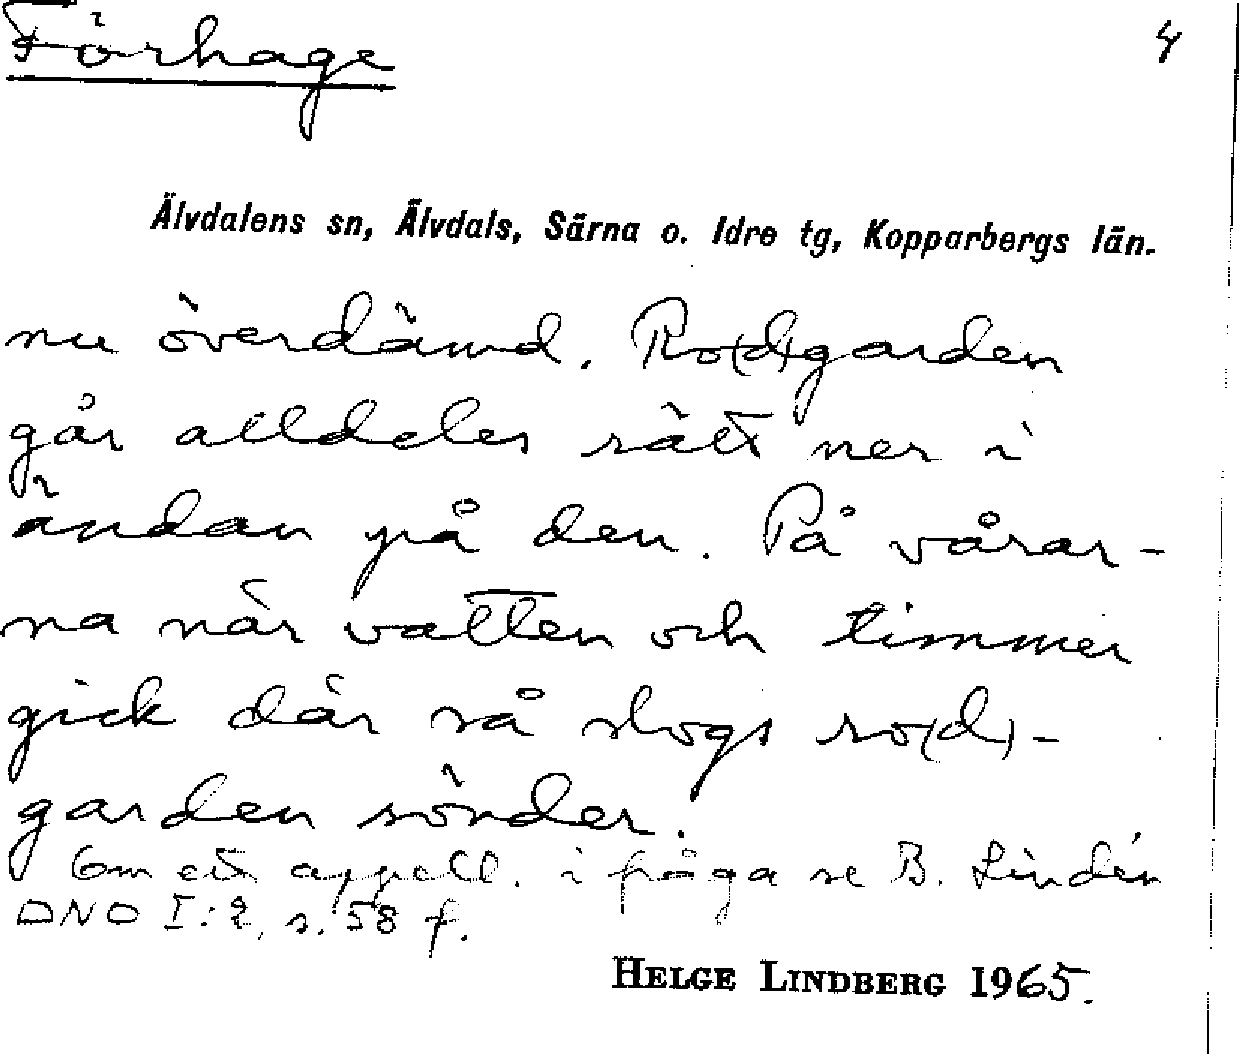 Förhage
4
Älvdalens sn, Älvdals, Särna o. Idre tg, Kopparbergs län.
nu överdämd. Ro(d)garden
går alldeles rätt ner i
ändan på den. På vårar-
na när vatten och timmer
gick där så slogs ro(d)-
garden sönder.
Om ett appell. i fråga se B. Lindén
DNO I:2, s. 58 f.
HELGE LINDBERG 1965.